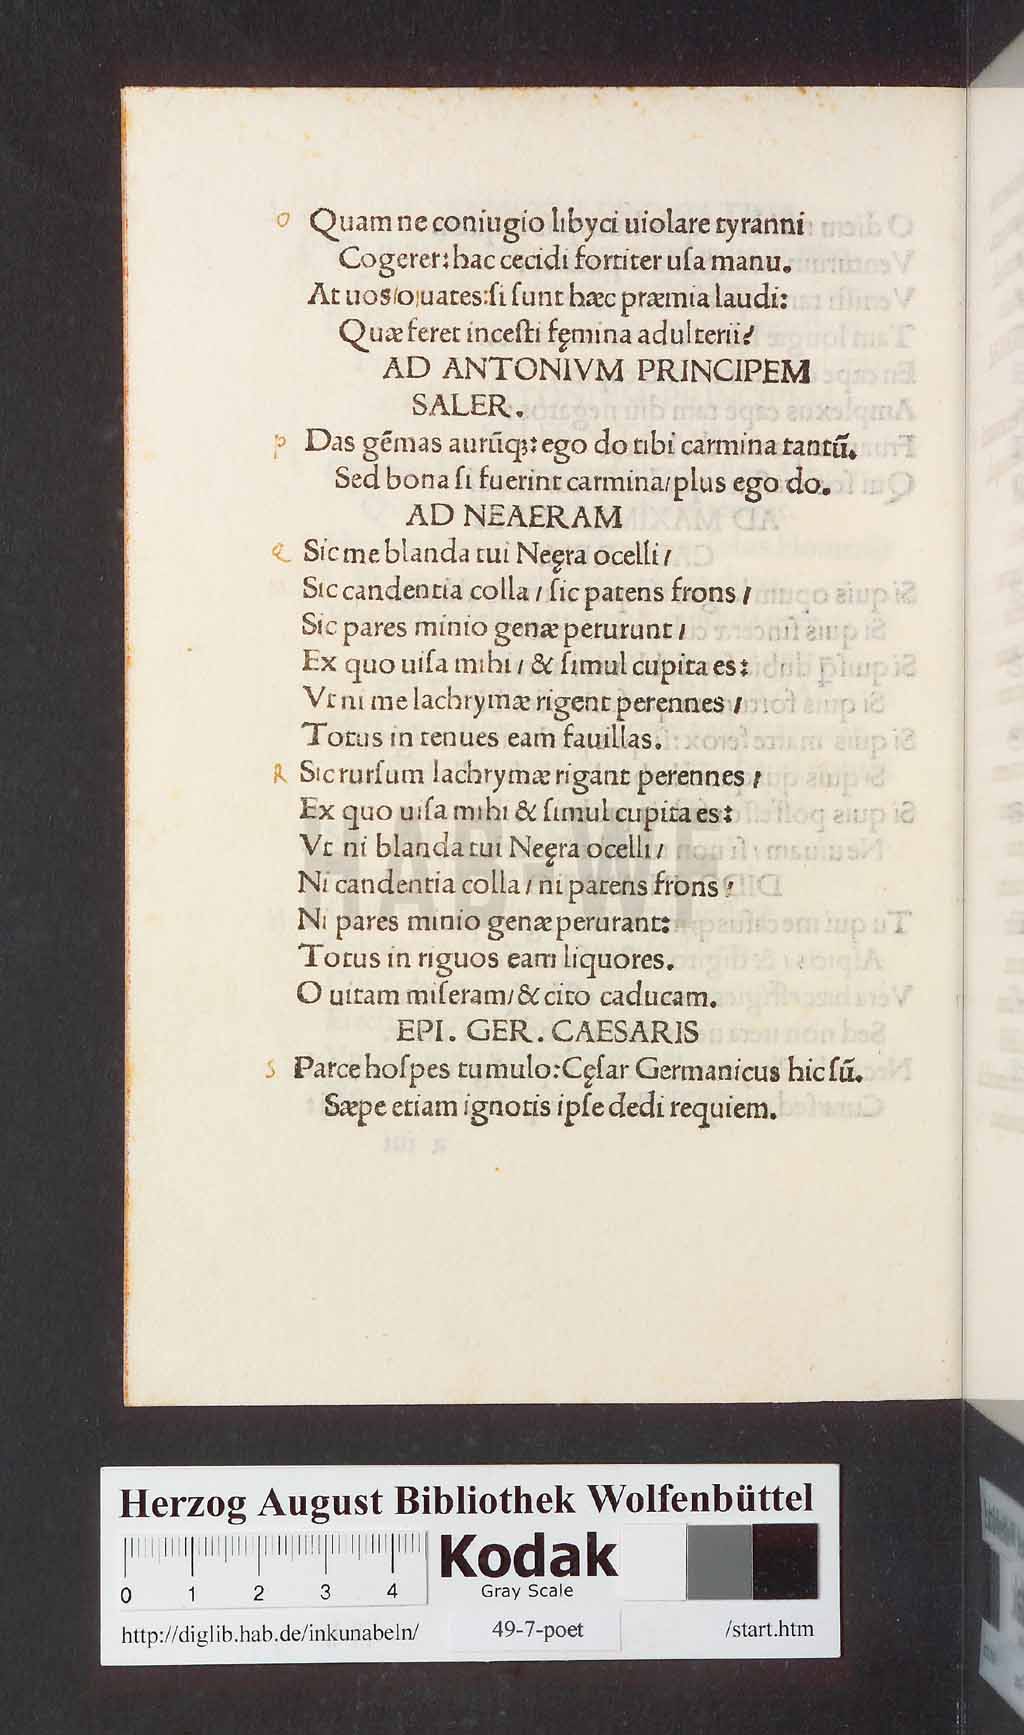 o Quam ne coniugio libyci uiolare tyranni
Cogerer: hac cecidi fortiter uſa manu.
At uos/o/uates: ſi ſunt hæc præmia laudi:
Quæ feret inceſti fęmina adulterii?
AD ANTONIVM PRINCIPEM
SALER.
p Das gēmas aurūqꝫ: ego do tibi carmina tantū.
Sed bona ſi fuerint carmina/ plus ego do.
AD NEAERAM
Q Sic me blanda tui Neęra ocelli/
Sic candentia colla / ſic patens frons /
Sic pares minio genæ perurunt /
Ex quo uiſa mihi / & ſimul cupita es:
Vt ni me lachrymæ rigent perennes /
Totus in tenues eam fauillas.
R Sic rurſum lachrymæ rigant perennes /
Ex quo uiſa mihi & ſimul cupita es:
Vt ni blanda tui Neęra ocelli/
Ni candentia colla / ni patens frons /
Ni pares minio genæ perurant:
Totus in riguos eam liquores.
O uitam miſeram/ & cito caducam.
EPI. GER. CAESARIS
S Parce hoſpes tumulo: Cęſar Germanicus hic ſū.
Sæpe etiam ignotis ipſe dedi requiem.
HAB-WF
Herzog August Bibliothek Wolfenbüttel
Kodak
Gray Scale
0 1 2 3 4
http://diglib.hab.de/inkunabeln/ 49-7-poet /start.htm